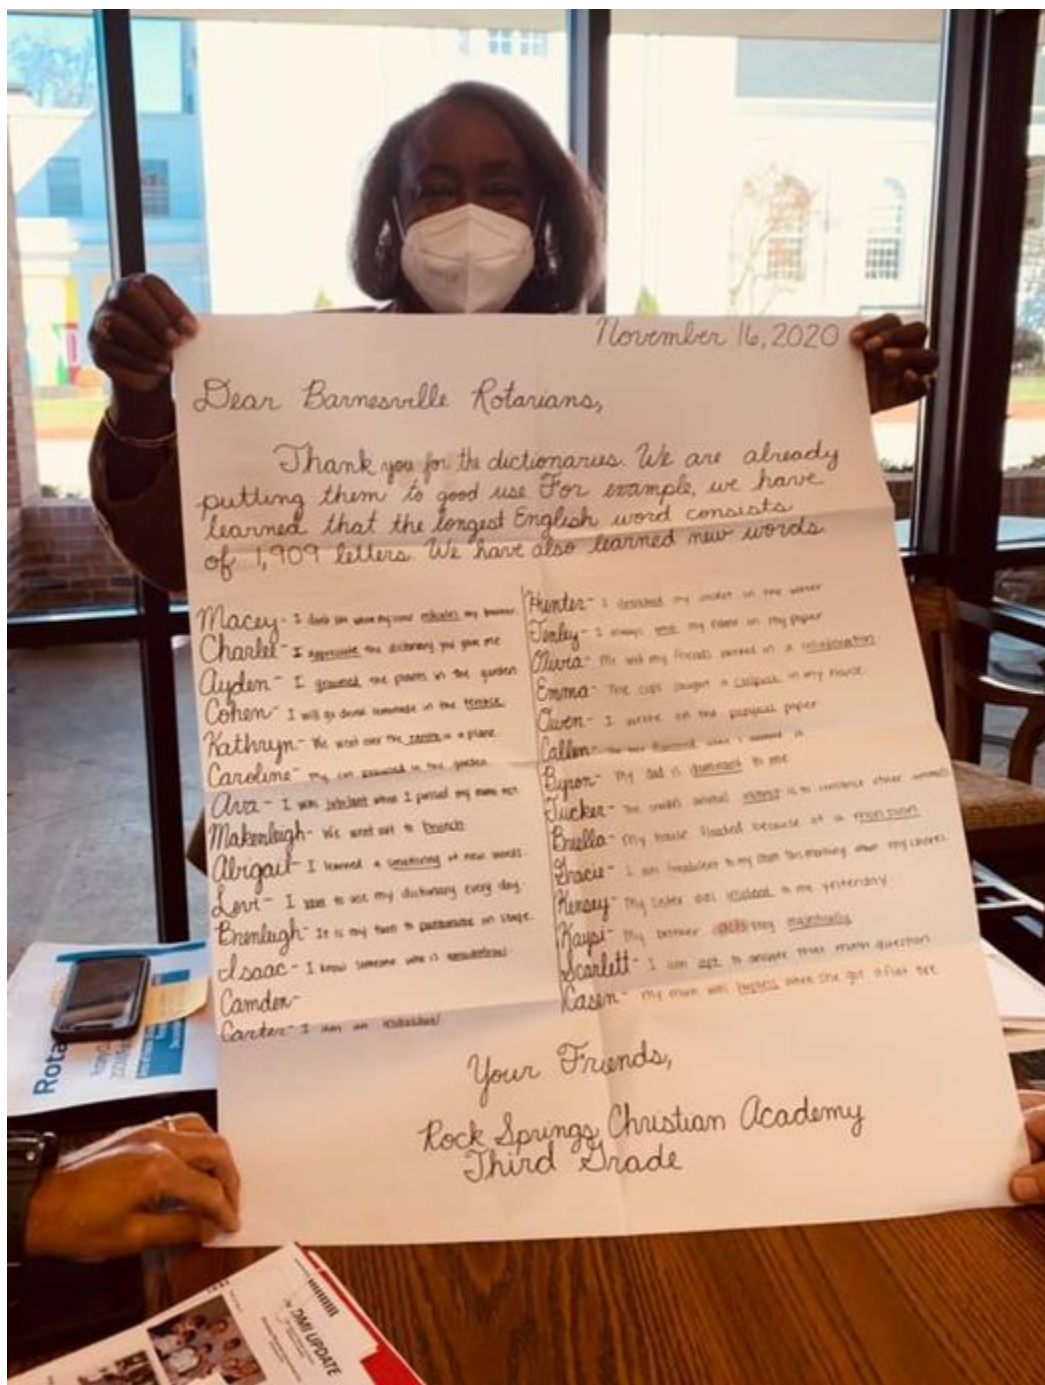 November 16, 2020
Dear Barnesville Rotarians,
Thank you for the dictionaries. We are already
putting them to good use For example, we have
learned that the longest English word consists
of 1,909 letters. We have also learned new words.
Macey- I don't like when my my brother
Charlee- I appreciate the dictionary you gave me
Ayden- I the plants in the garden
Cohen- I will go drink lemonade in the terrace.
Kathryn- We went over the in a plane.
Caroline- My cat in the garden
Ava- I was jubilant when I passed my math test.
Makenleigh- We went out to brunch
Abigail- I learned a smattering of new words.
Levi- I to use my dictionary every day.
Brenleigh- It is my turn to on stage.
Isaac- I know someone who is
Camden-
Carter- I am an individual
Hunter- I my jacket in the water
Tenley- I always my name on my paper
Olivia- Me and my friends worked in a collaboration
Emma- The cops caught a culprit in my house.
Owen- I write on the papyrus paper
Callen-
Byron- My dad is dominant to me
Tucker- The animal is to other animals
Briella- My house flooded because of a monsoon.
Gracie- I am to my mom this morning my chores.
Kensey- My sister was to me yesterday.
Kaysi- My brother acts majestically
Scarlett- I am apt to answer math question
Casen- My mom was when she got a flat tire
Your Friends,
Rock Springs Christian Academy
Third Grade
Rota
DMI UPDATE